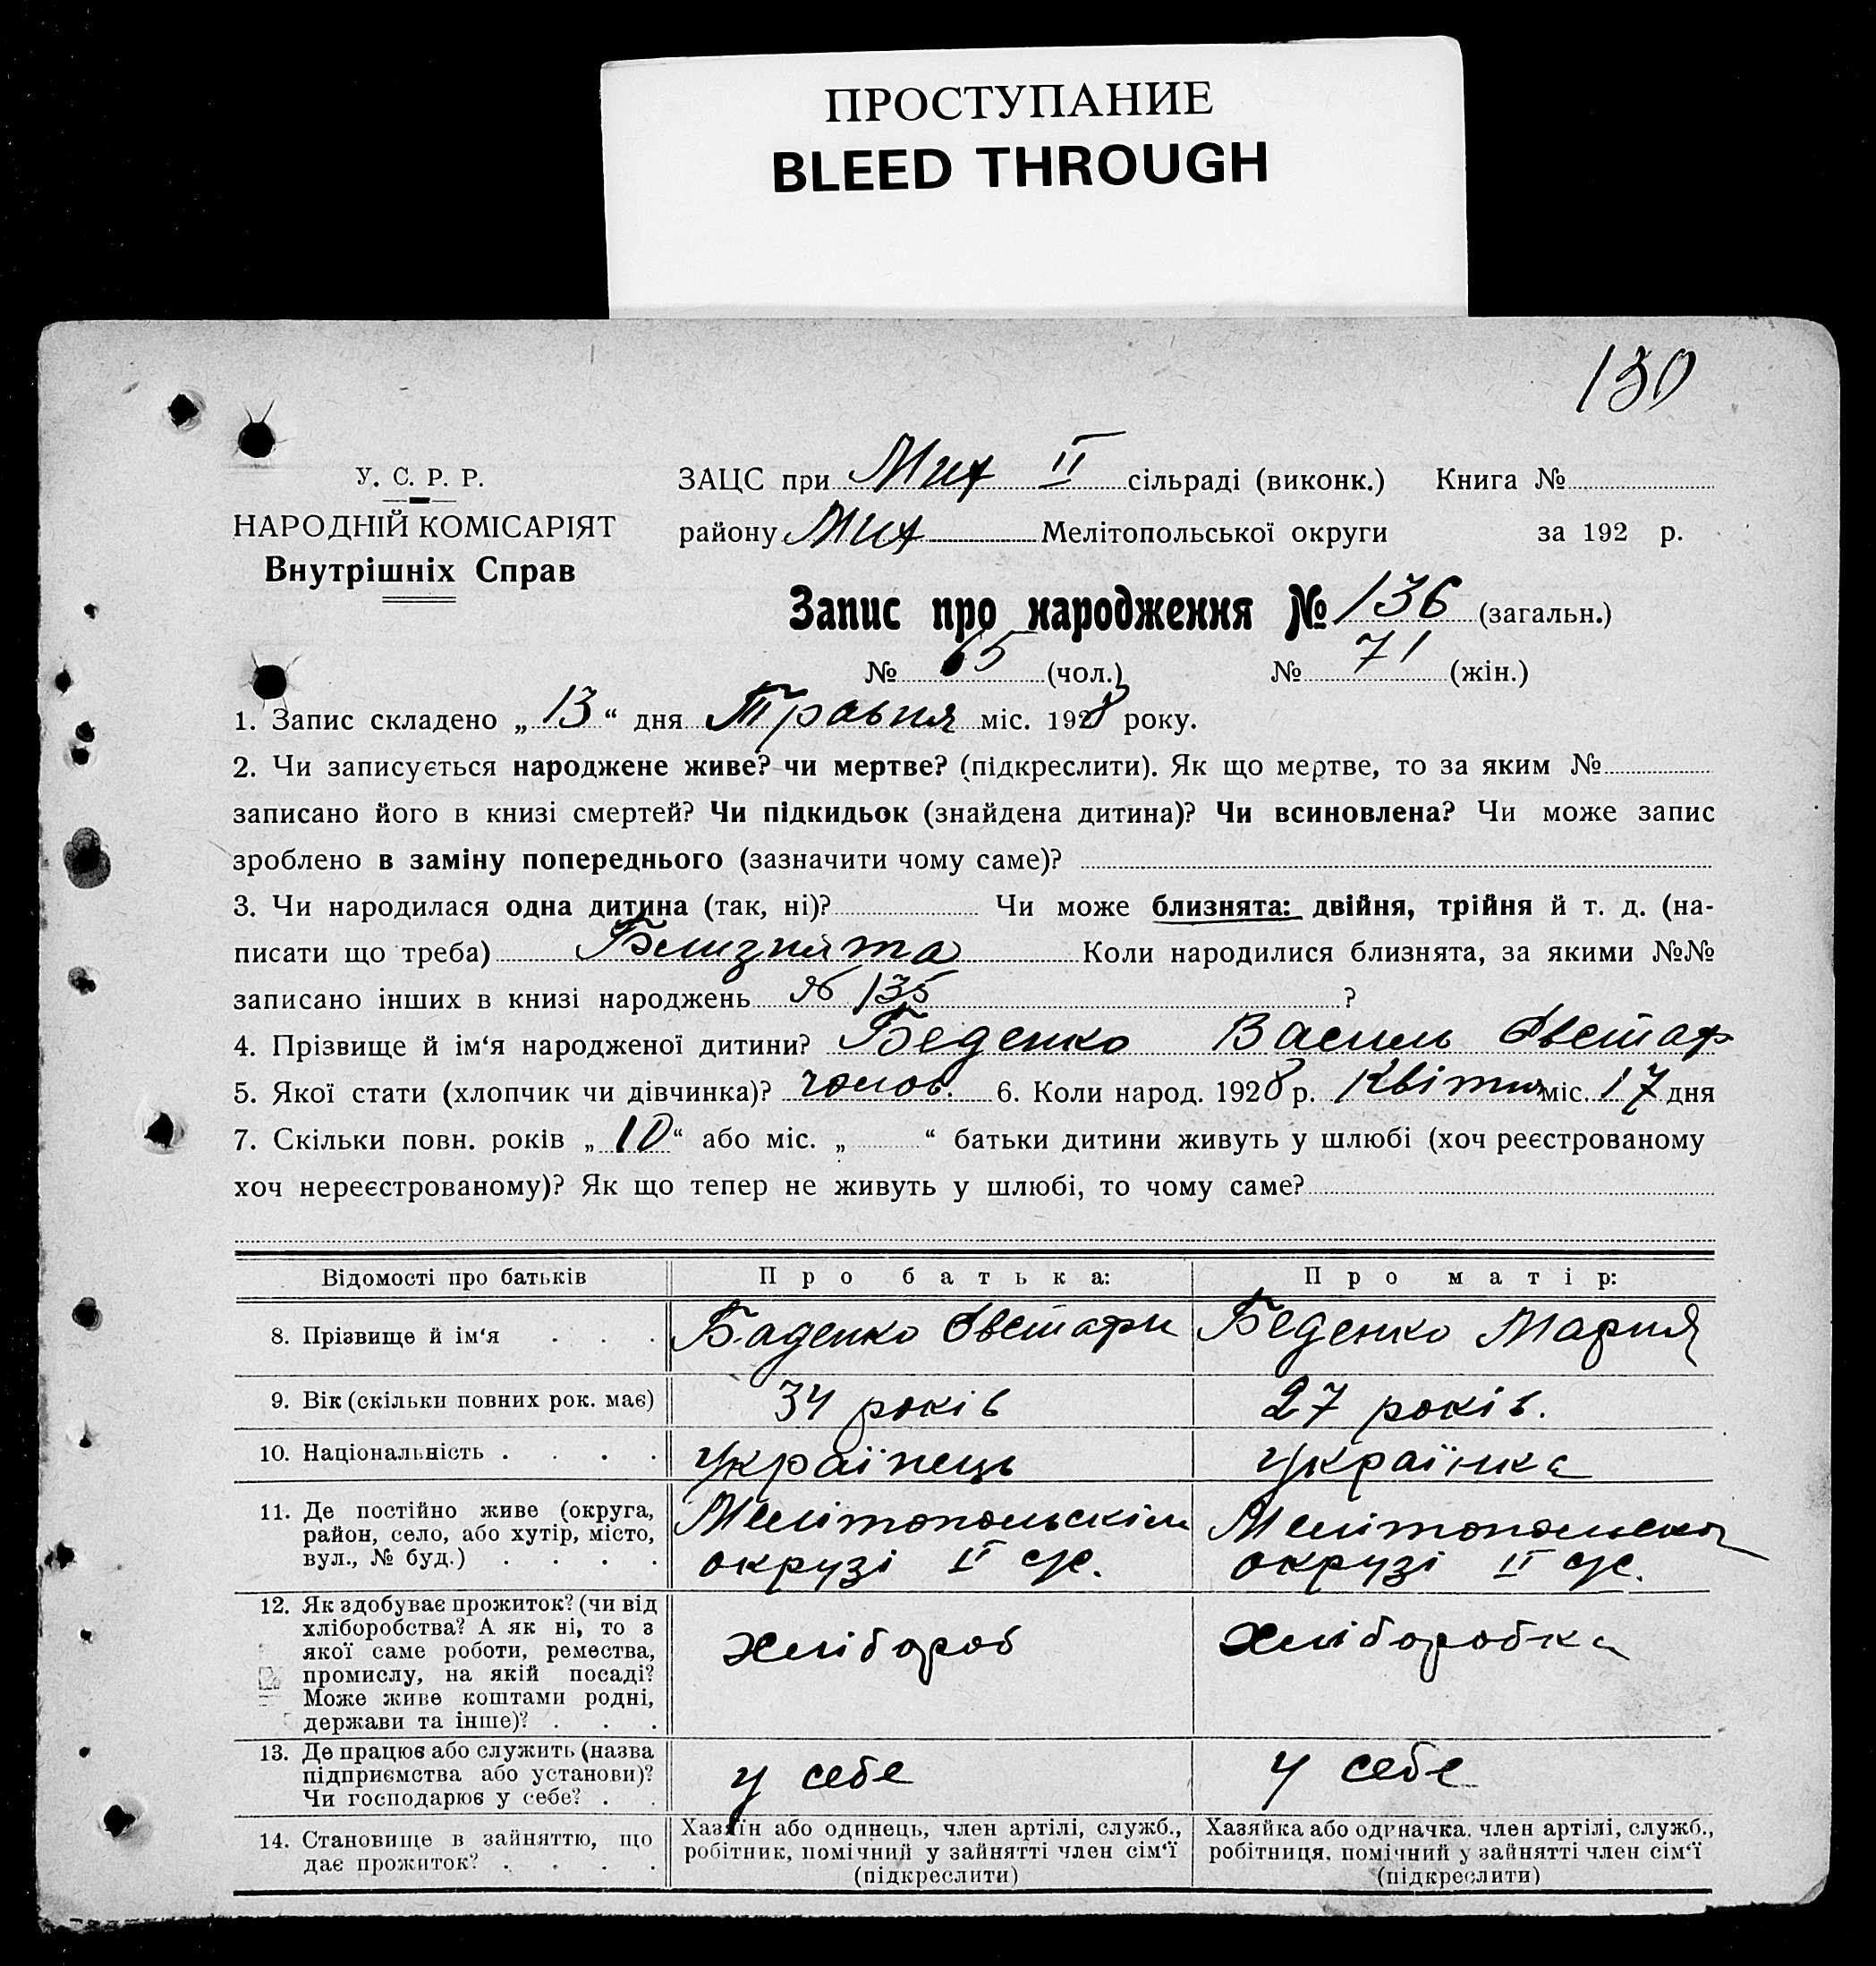 ПРОСТУПАНИЕ
BLEED THROUGH
130
У. С. Р. Р.
НАРОДНІЙ КОМІСАРІЯТ
Внутрішніх Справ
ЗАЦС при Мих II сільраді (виконк.) Книга №
району Мих Мелітопольської округи за 192 р.
Запис про народження № 136 (загальн.)
№ 65 (чол.) № 71 (жін.)
1. Запис складено „ 13 “ дня Травня міс. 1928 року.
2. Чи записується народжене живе? чи мертве? (підкреслити). Як що мертве, то за яким №
записано його в книзі смертей? Чи підкидьок (знайдена дитина)? Чи всиновлена? Чи може запис
зроблено в заміну попереднього (зазначити чому саме)?
3. Чи народилася одна дитина (так, ні)? Чи може близнята: двійня, трійня й т. д. (на-
писати що треба) Близнята Коли народилися близнята, за якими №№
записано інших в книзі народжень № 135 ?
4. Прізвище й ім‘я народженої дитини? Беденко Василь Овстаф
5. Якої стати (хлопчик чи дівчинка)? чолов. 6. Коли народ. 1928 р. Квітня міс. 17 дня
7. Скільки повн. років „ 10 “ або міс. „ “ батьки дитини живуть у шлюбі (хоч реєстрованому
хоч нереєстрованому)? Як що тепер не живуть у шлюбі, то чому саме?
Відомості про батьків Про батька: Про матір:
8. Прізвище й ім‘я . . . Баденко Овстафи Беденко Мария
9. Вік (скільки повних рок. має) 34 років 27 років.
10. Національність . . . . українець українка
11. Де постійно живе (округа,
район, село, або хутір, місто,
вул., № буд.) . . . .
Мелітопольскім
окрузі II
Мелітопольской
окрузі II
12. Як здобуває прожиток? (чи від
хліборобства? А як ні, то з
якої саме роботи, ремества,
промислу, на якій посаді?
Може живе коштами родні,
держави та інше)? . . .
хлібороб
хліборобка
13. Де працює або служить (назва
підприємства або установи)?
Чи господарює у себе? . .
у себе
у себе
14. Становище в зайняттю, що
дає прожиток? . . . .
Хазяїн або одинець, член артілі, служб.,
робітник, помічний у зайнятті член сім‘ї
(підкреслити)
Хазяйка або одиначка, член артілі, служб.,
робітниця, помічний у зайнятті член сім‘ї
(підкреслити)